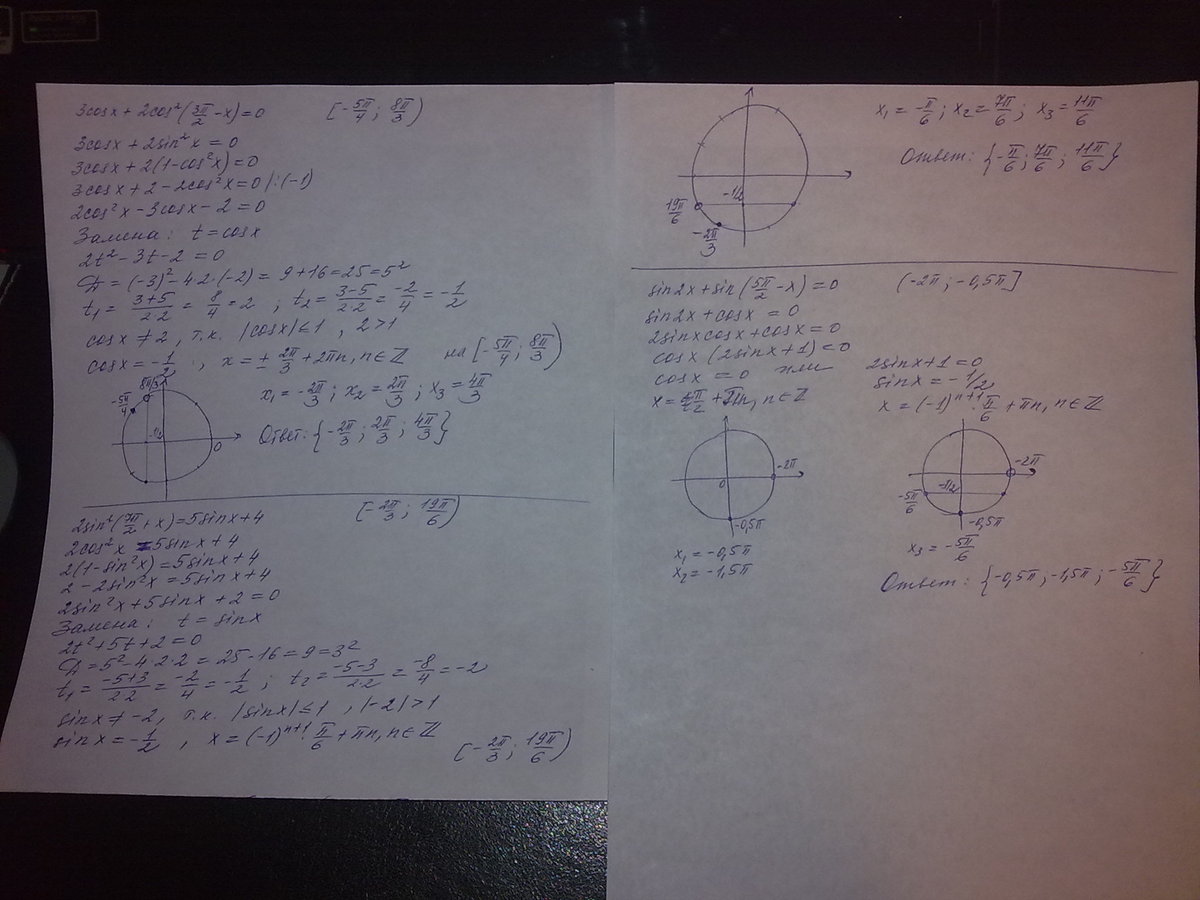 3cosx + 2cos²(3π/2 - x) = 0 [-5π/4; 8π/3)
3cosx + 2sin²x = 0
3cosx + 2(1-cos²x) = 0
3cosx + 2 - 2cos²x = 0 |:(-1)
2cos²x - 3cosx - 2 = 0
Замена: t = cosx
2t² - 3t - 2 = 0
D = (-3)² - 4·2·(-2) = 9 + 16 = 25 = 5²
t₁ = (3+5)/(2·2) = 8/4 = 2 ; t₂ = (3-5)/(2·2) = -2/4 = -1/2
cosx ≠ 2, т.к. |cosx| ≤ 1 , 2 > 1
cosx = -1/2 ; x = ± 2π/3 + 2πn, n ∈ ℤ на [-5π/4; 8π/3)
x₁ = -2π/3 ; x₂ = 2π/3 ; x₃ = 4π/3
8π/3
-5π/4
-1/2
0
Ответ: {-2π/3; 2π/3; 4π/3}
2sin²(7π/2 + x) = 5sinx + 4 [-2π/3; 19π/6)
2cos²x = 5sinx + 4
2(1-sin²x) = 5sinx + 4
2 - 2sin²x = 5sinx + 4
2sin²x + 5sinx + 2 = 0
Замена: t = sinx
2t² + 5t + 2 = 0
D = 5² - 4·2·2 = 25 - 16 = 9 = 3²
t₁ = (-5+3)/(2·2) = -2/4 = -1/2 ; t₂ = (-5-3)/(2·2) = -8/4 = -2
sinx ≠ -2, т.к. |sinx| ≤ 1 , |-2| > 1
sinx = -1/2 , x = (-1)ⁿ⁺¹·π/6 + πn, n ∈ ℤ
[-2π/3; 19π/6)
x₁ = -π/6 ; x₂ = 7π/6 ; x₃ = 11π/6
Ответ: {-π/6; 7π/6; 11π/6}
-1/2
19π/6
-2π/3
sin2x + sin(5π/2 - x) = 0 (-2π; -0,5π]
sin2x + cosx = 0
2sinxcosx + cosx = 0
cosx (2sinx + 1) = 0
cosx = 0 или 2sinx + 1 = 0
sinx = -1/2
x = π/2 + πn, n ∈ ℤ x = (-1)ⁿ⁺¹·π/6 + πn, n ∈ ℤ
0
-2π
-0,5π
-2π
-1/2
-5π/6
-0,5π
x₁ = -0,5π
x₂ = -1,5π
x₃ = -5π/6
Ответ: {-0,5π; -1,5π; -5π/6}